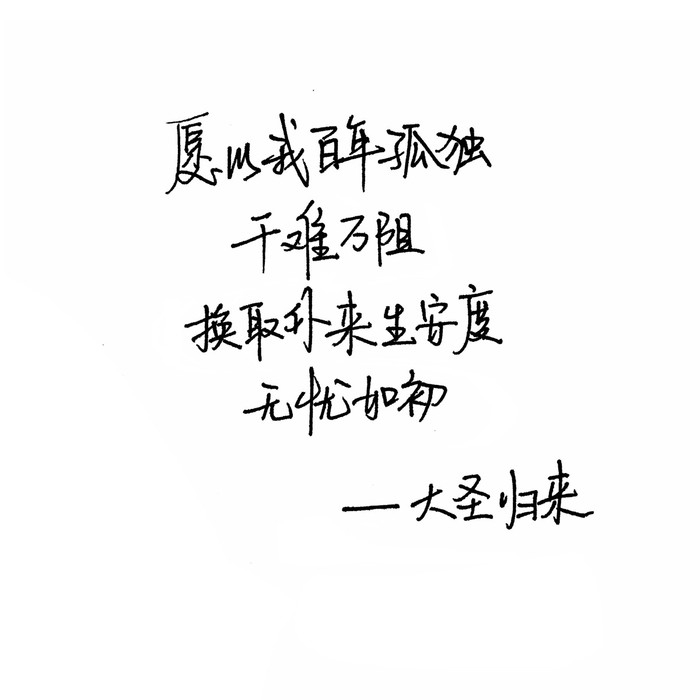 愿以我百年孤独
千难万阻
换取外来生安度
无忧如初
—大圣归来